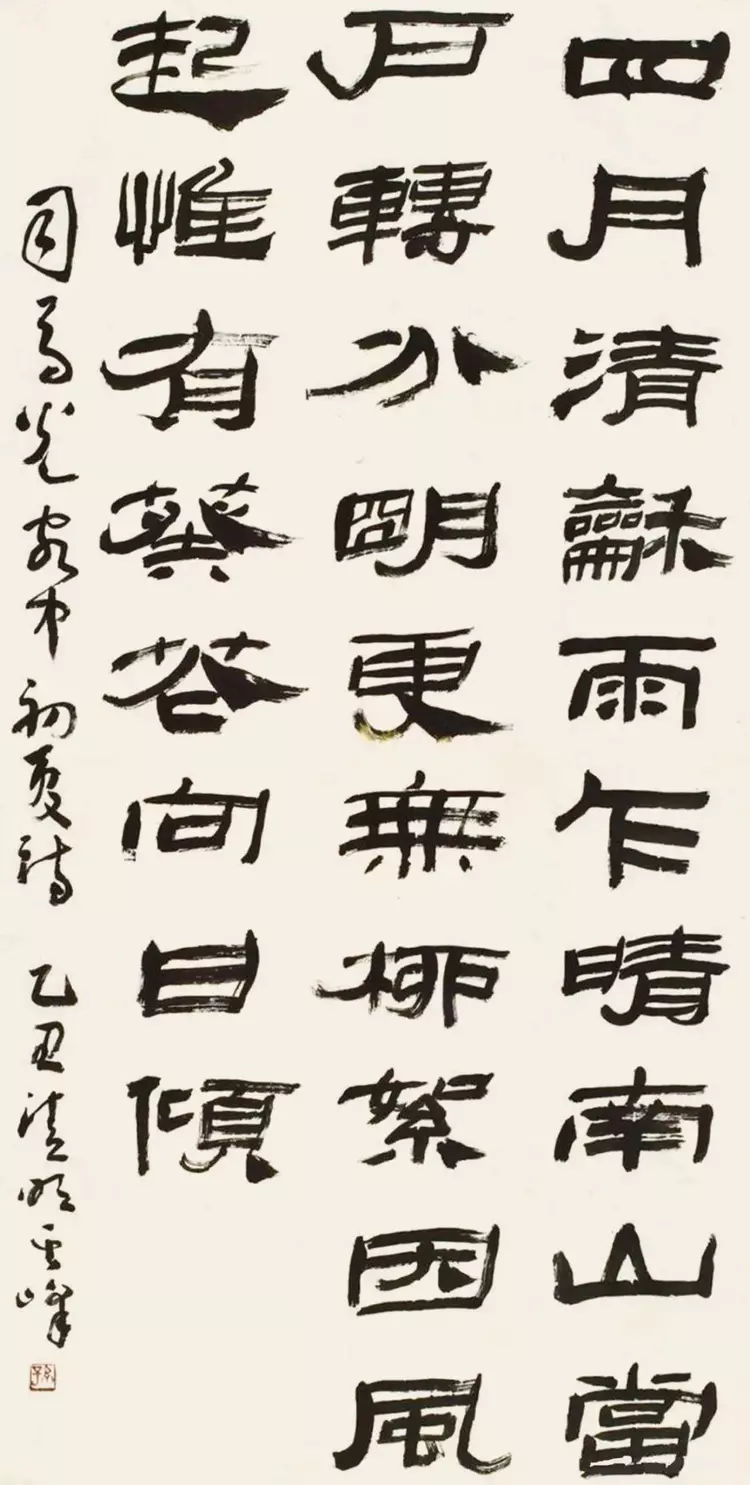 四月清龢雨乍晴南山當
戶轉分明更無柳絮因風
起惟有葵花向日傾
司馬光客中初夏詩 乙丑清明雲峰